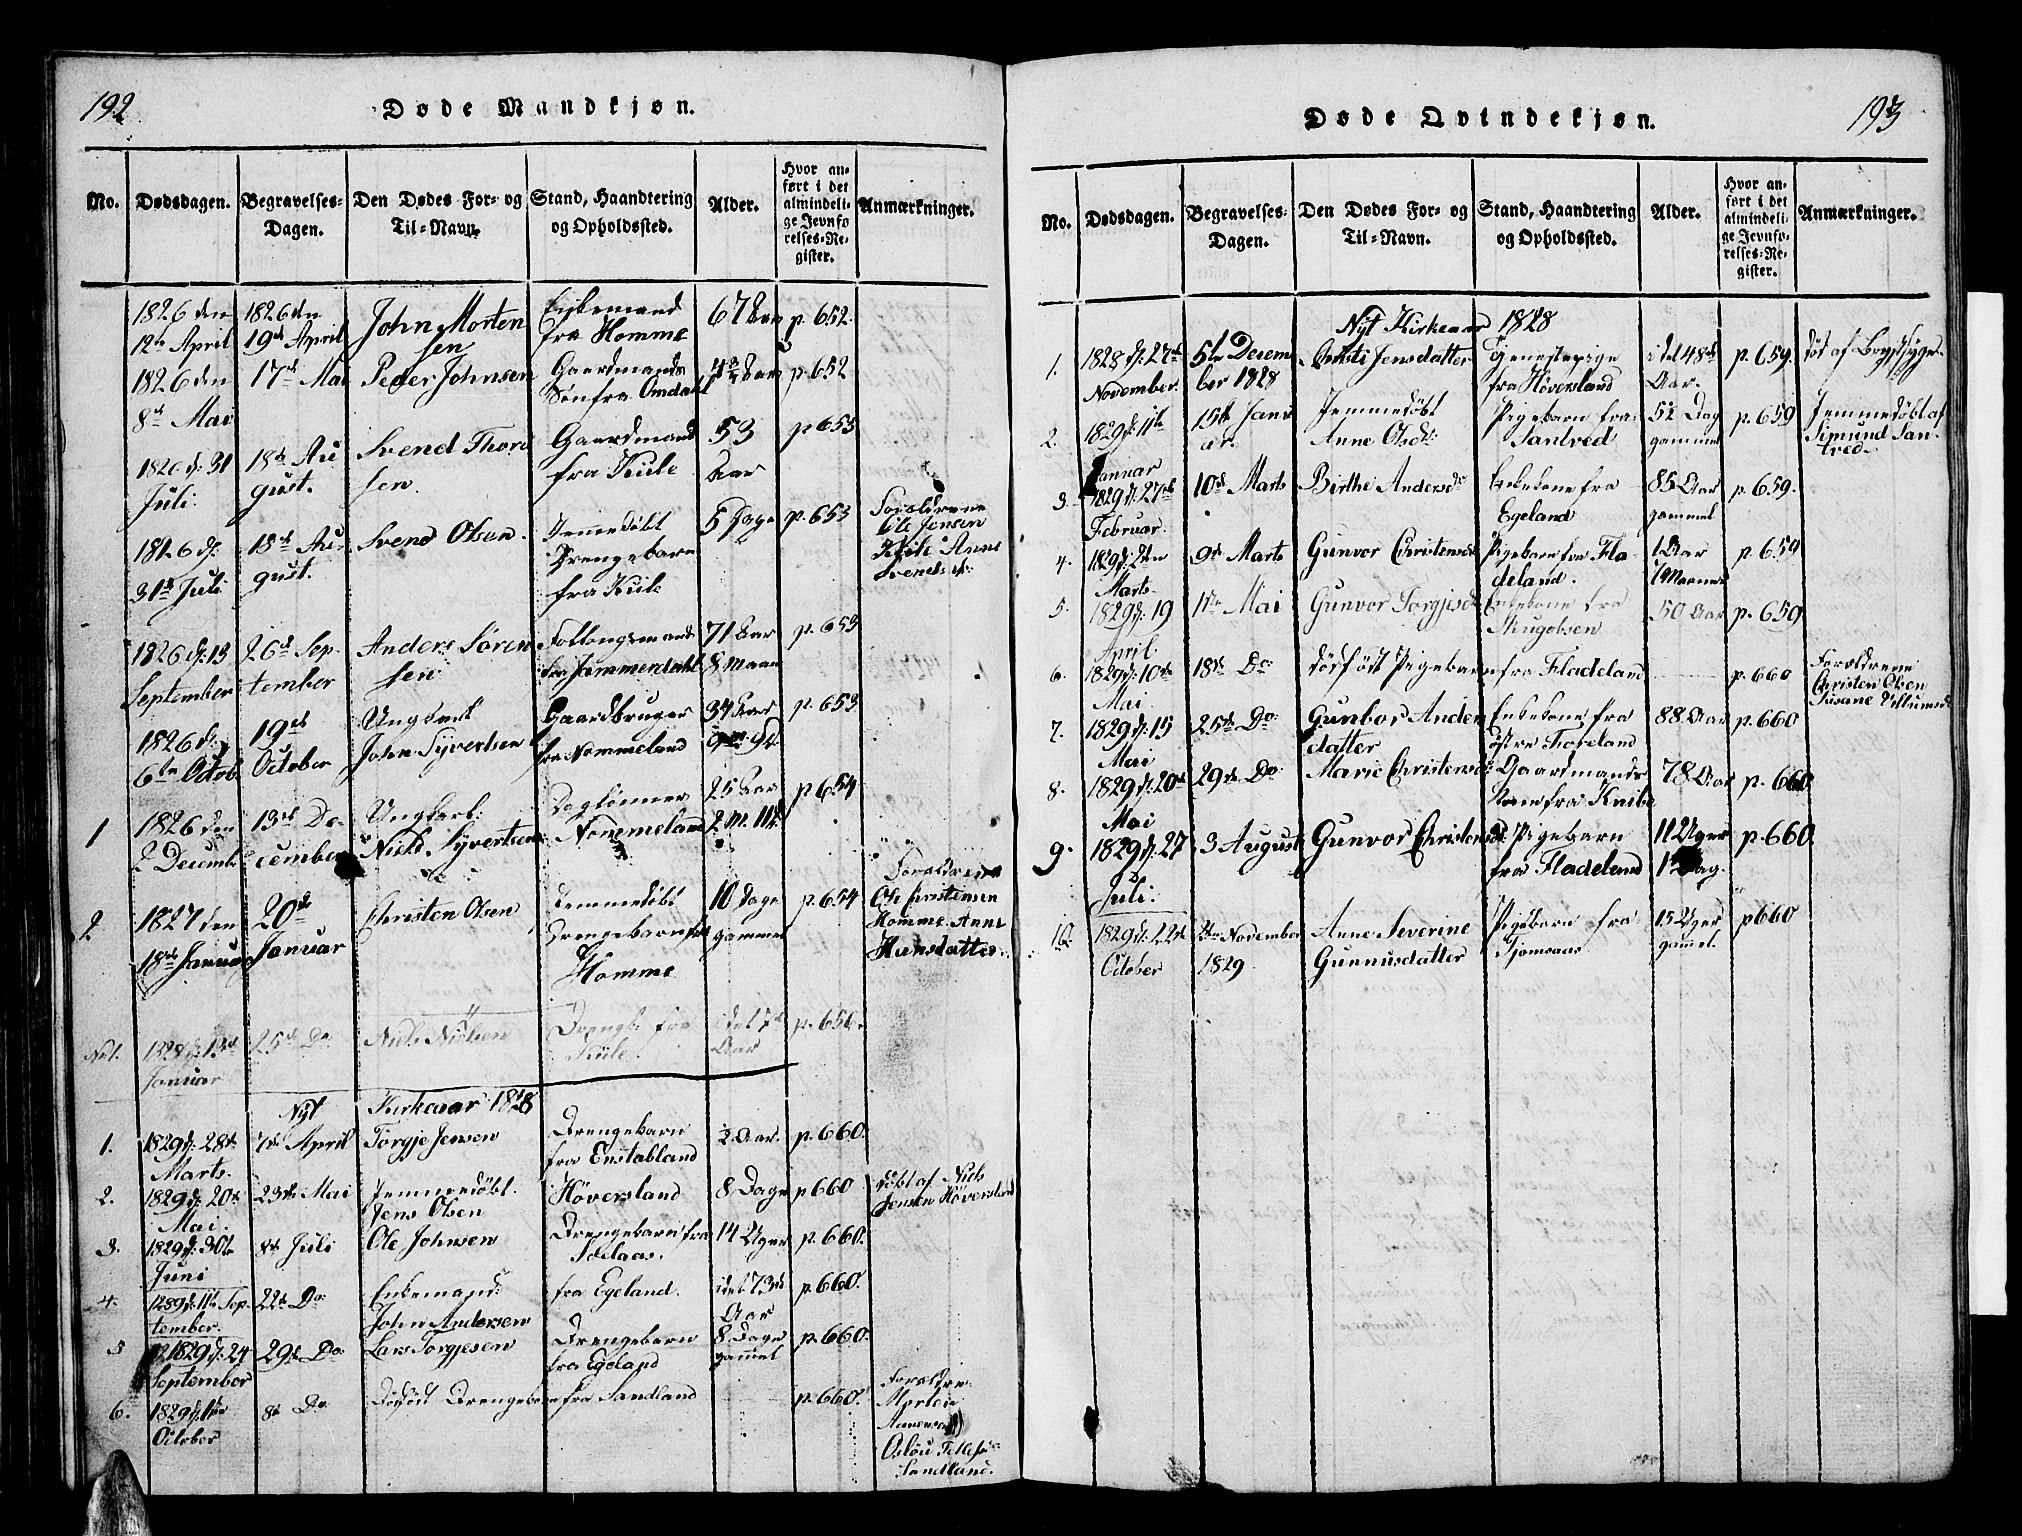 192
Døde Mandkjøn.
No.
Dødsdagen.
Begravelses-
Dagen.
Den Dødes For- og
Til-Navn.
Stand, Haandtering
og Opholdssted.
Alder.
Hvor an-
ført i det
almindeli-
ge Jevnfø-
relses-Re-
gister.
Anmærkninger.
1826 den
12te April
1826 den
19de April
John Morten
sen
Enkemand
fra Homme
67 Aar
p. 652.
1826 den
8de Mai
17de Mai
Peder Johnsen
Gaardmands
Søn fra Omdahl
Aar
p. 652
1826 d: 31
Juli.
18de Au
gust.
Svend Thors
sen.
Gaardmand
fra Kule
53
Aar
p 653
1826 d:
31te Juli
18de Au-
gust.
Svend Olsen.
Jemmedøbt
Drengebarn
fra Kule
5 Dage
p. 653
Forældrene
Ole Jensen
Kule Anne
Svends d:
1826 d: 13
September
26de Sep-
tember
Anders Søren
sen
fra
71 Aar
8 Maan
p. 653
1826 d:
6te Octob.
19de
October
Ungkarl
John Syvertsen
Gaardbruger
fra Nommeland
34 Aar
p. 653
1
1826 den
2 Decemb.
13de De-
cember
Ungkarl:
Niels Syvertsen
Daglønner
Nommeland
25 Aar
p 654
2
1827 den
18de Januar
20de
Januar
Christen Olsen
Jemmedøbt
Drengebarn fra
Homme
10 Dage
gammel
p. 654
Forældrene
Ole Christensen
Homme Anne
Hansdatter.
No 1.
1828 d: 13de
Januar
25de Do
Niels Nielsen
Drengb. fra
Kule.
i det 7de
Aar
p. 656.
Nyt Kirkeaar 1828
1.
1829 d: 28de
Marts.
7de April
Torgje Jensen
Drengebarn
fra Enstabland
2 Aar.
p. 660.
2.
1829 d: 20de
Mai.
23de Mai
Jemmedøbt.
Jens Olsen
Höversland
8 Dage
p 660
døbt af Niels
Jensen Höversland
3.
1829 d: 30te
Juni
8de Juli
Ole Johnsen
Drengebarn fra
14 Uger
p. 660.
4.
1289 d: 11te Sep-
tember.
22de Do
Enkemand:
John Andersen
fra Egeland.
i det 73de
Aar
p. 660.
5
1829 d: 24
September
29de Do
Lars Torgjesen
Drengebarn
fra Egeland
8 Dage
gammel
p. 660.
6.
1829 d:
October
8de Do
Dødfødt Drengebarn fra Sandland
p. 660.
Forældre
Morten
Sandland.
193
Døde Qvindekjøn.
No.
Dødsdagen.
Begravelses-
Dagen.
Den Dødes For- og
Til-Navn.
Stand, Haandtering
og Opholdssted.
Alder.
Hvor an-
ført i det
almindeli-
ge Jevnfø-
relses-Re-
gister.
Anmærkninger.
Nyt Kirkeaar 1828
1.
1828 d: 27de
November.
5te Decem
ber 1828
Jensdatter
Tjenestepige
fra Höversland
i det 48de
Aar.
p. 659.
død af Brystsyge
2.
1829 d: 11te
Januar
15de Janu
ar.
Jemmedøbt
Anne Olsdt:
Pigebarn fra
Santved
Dag
gammel
p. 659
Jemmedøbt af
Simund San-
tved.
3.
1829 d: 27de
Februar.
10de Marts
Birthe Andersdt
Enkekone fra
Egeland
85 Aar
gammel
p. 659.
4.
1829 d: 2den
Marts.
9de Marts
Gunvor Christensdt
Pigebarn fra Fla
deland.
1 Aar
p. 659
5.
1829 d: 19
April.
Mai
Gunvor Torgjesdt
Enkekone fra
50 Aar
p. 659
6.
1829 d: 10de
Mai
18de Do:
dødfødt Pigebarn fra Fladeland
p. 660
Forældrene
Christen Olsen
Susane
7.
1829 d: 15
Mai
25de Do
Gunbor Anders
datter
Enkekone fra
östre Foreland
88 Aar
p. 660
8.
1829 d: 20de
Mai
29de Do
Marie Christensdt:
Gaardmands
Kone fra Knibe
78 Aar
p. 660
9.
1829 d: 27
Juli.
3 August
Gunvor Christensdt:
Pigebarn
fra Fladeland
11 Uger
1 Dag.
p. 660.
10.
1829 d. 22de
October
November
1829
Anne Severine
Gunnusdatter
Pigebarn fra
Tjomsaas
15 Uger
gammel.
p 660